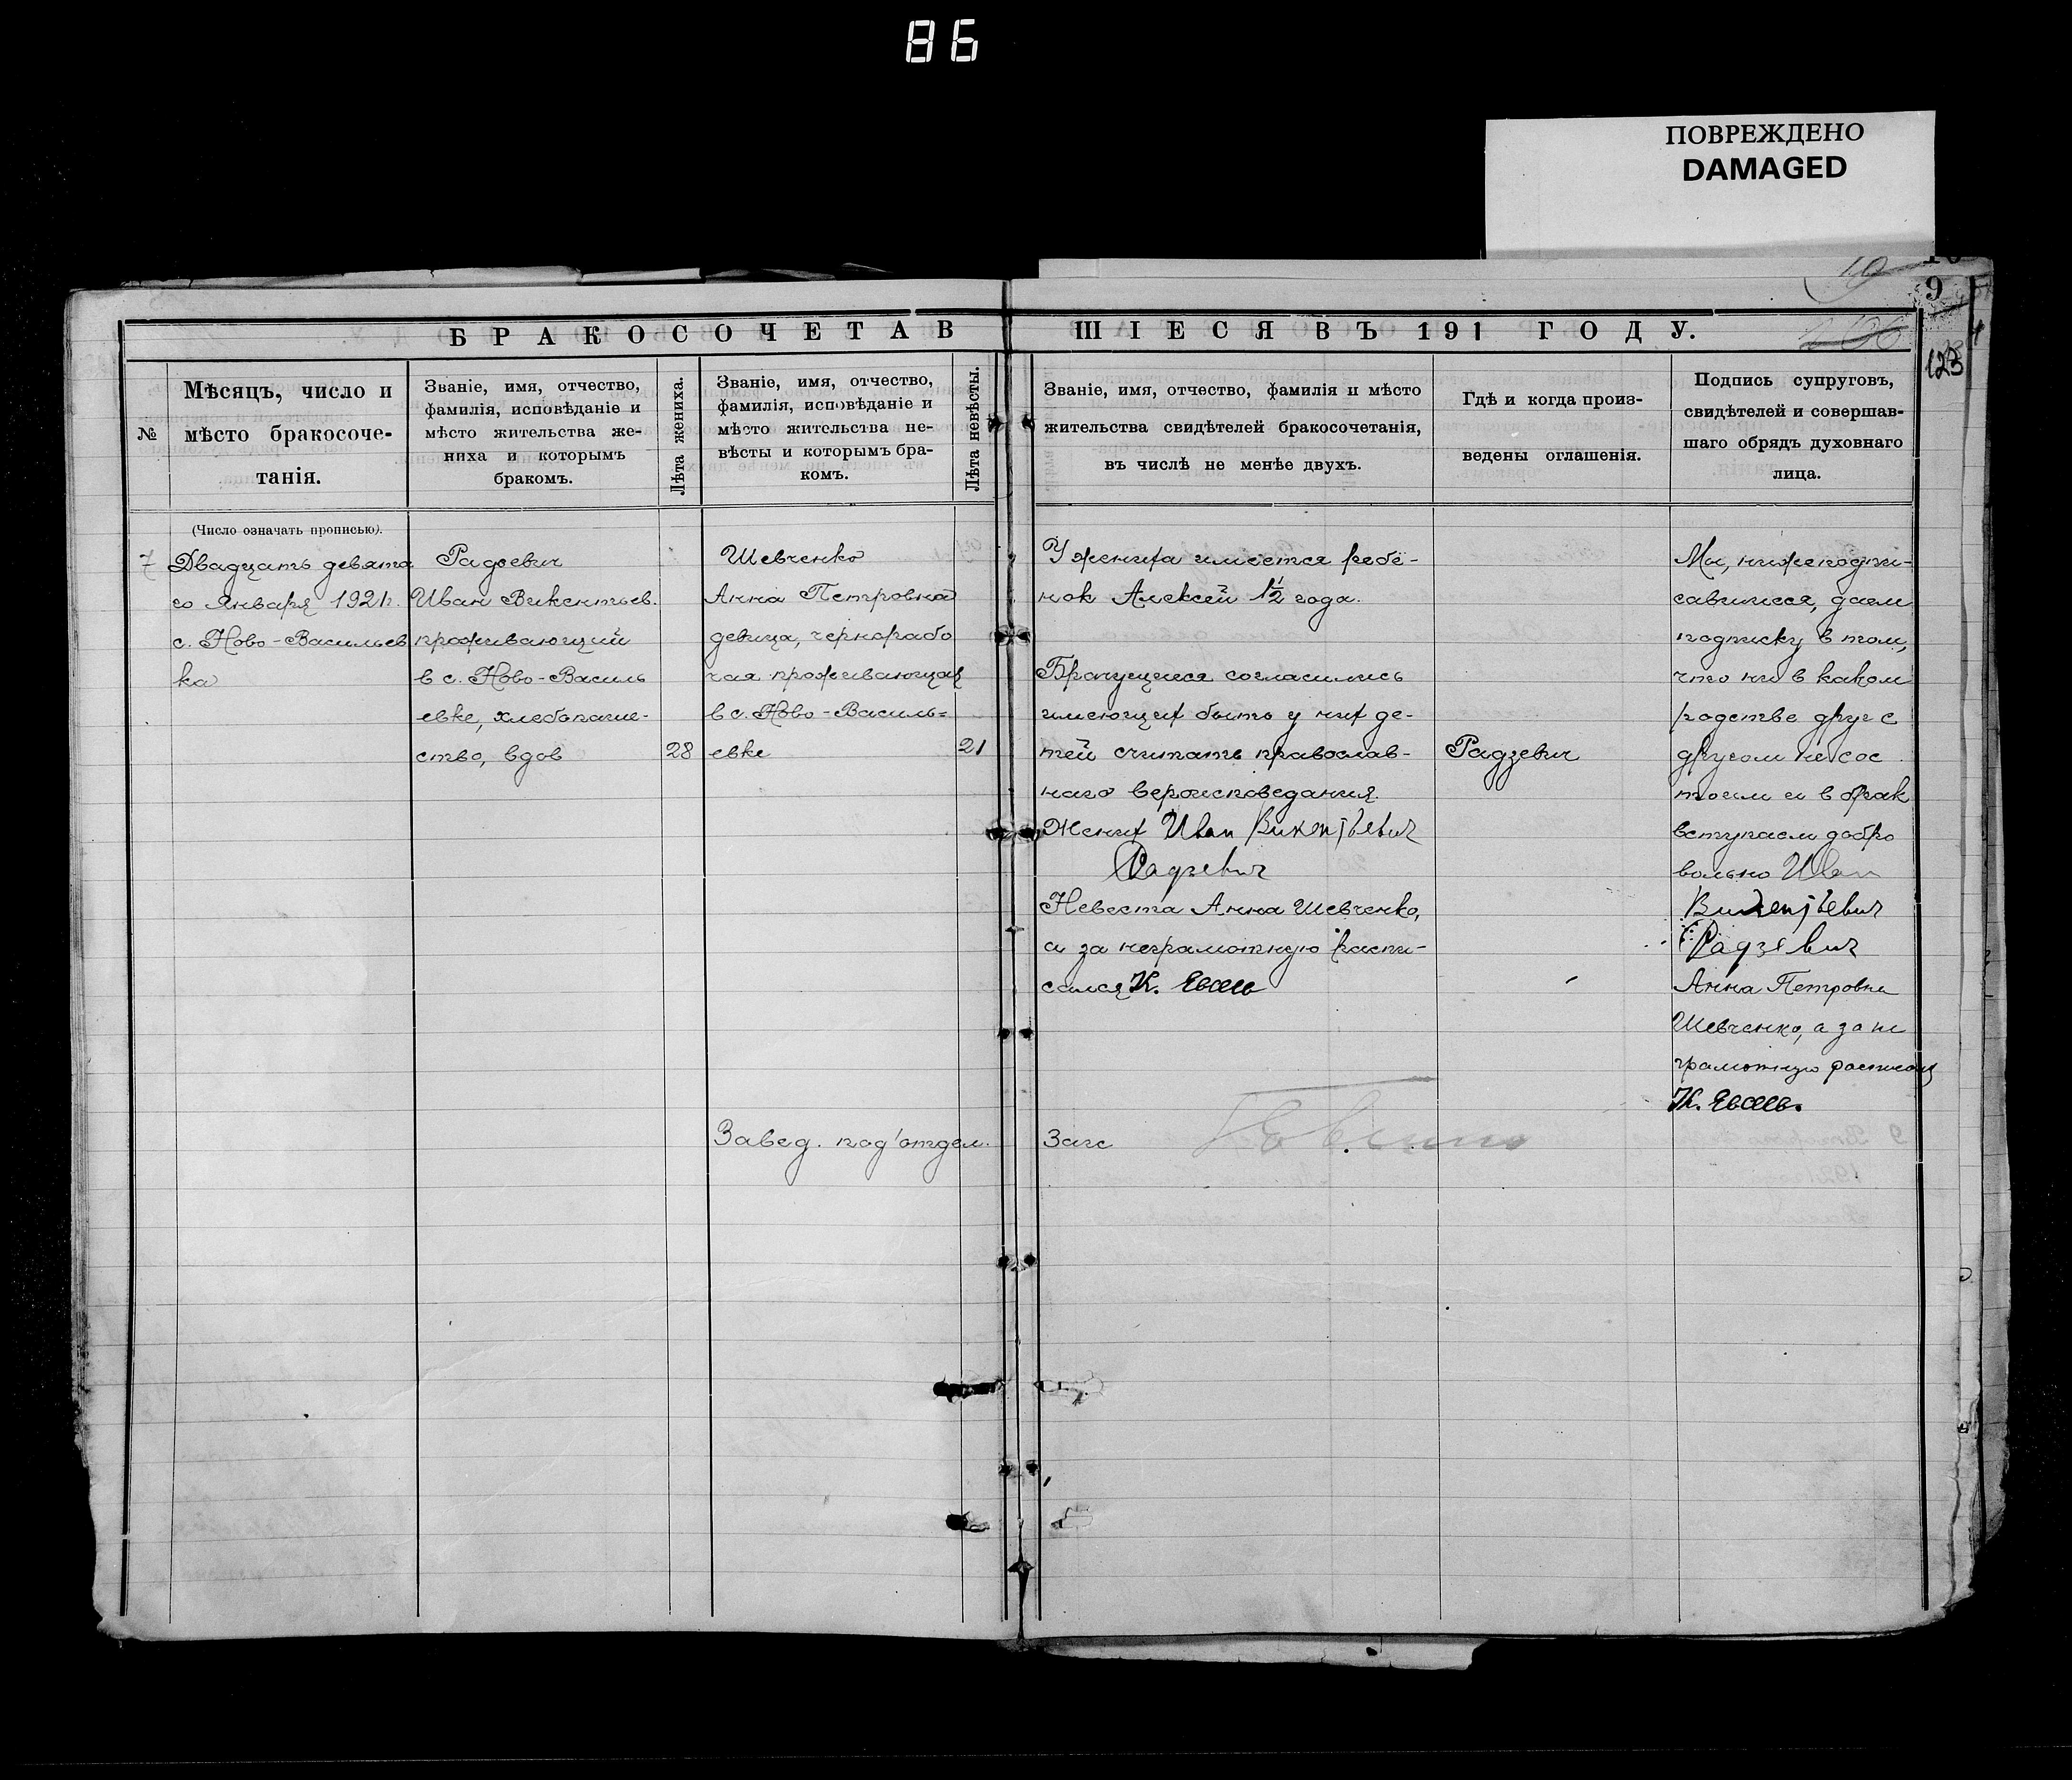 86
ПОВРЕЖДЕНО
DAMAGED
19
9
123
БРАКОСОЧЕТАВ
ШІЕСЯ ВЪ 191 ГОДУ.
№
Мѣсяцъ, число и
мѣсто бракосоче-
танія.
Званіе, имя, отчество,
фамилія, исповѣданіе и
мѣсто жительства же-
ниха и которымъ
бракомъ.
Лѣта жениха.
Званіе, имя, отчество,
фамилія, исповѣданіе и
мѣсто жительства не-
вѣсты и которымъ бра-
комъ.
Лѣта невѣсты.
Званіе, имя, отчество, фамилія и мѣсто
жительства свидѣтелей бракосочетанія,
въ числѣ не менѣе двухъ.
Гдѣ и когда произ-
ведены оглашенія.
Подпись супруговъ,
свидѣтелей и совершав-
шаго обрядъ духовнаго
лица.
(Число означать прописью).
7
Двадцать девято
го Января 1921г.
с. Ново-Васильев
ка
Радзевич
Иван Викентьев.
проживающий
в с. Ново-Василь
евке, хлебопаше-
ство, вдов
28
Шевченко
Анна Петровна
девица, чернорабо
чая проживающая
в с. Ново-Василь=
евке
21
У жениха имеется ребё-
нок Алексей 1½ года.
Брачущиеся согласились
имеющих быть у них де-
тей считать православ-
наго вероисповедания.
Жених Иван Викентьевич
Радзевич
Невеста Анна Шевченко,
а за неграмотную распи-
сался К.
Радзевич
Мы, нижеподпи-
савшиеся, даем
подписку в том,
что ни в каком
родстве друг с
другом не сос
тоим и в брак
вступаем добро
вольно Иван
Викентьевич
Радзевич
Анна Петровна
Шевченко, а за не
грамотную расписался
К.
Завед. под'отдел.
Загс